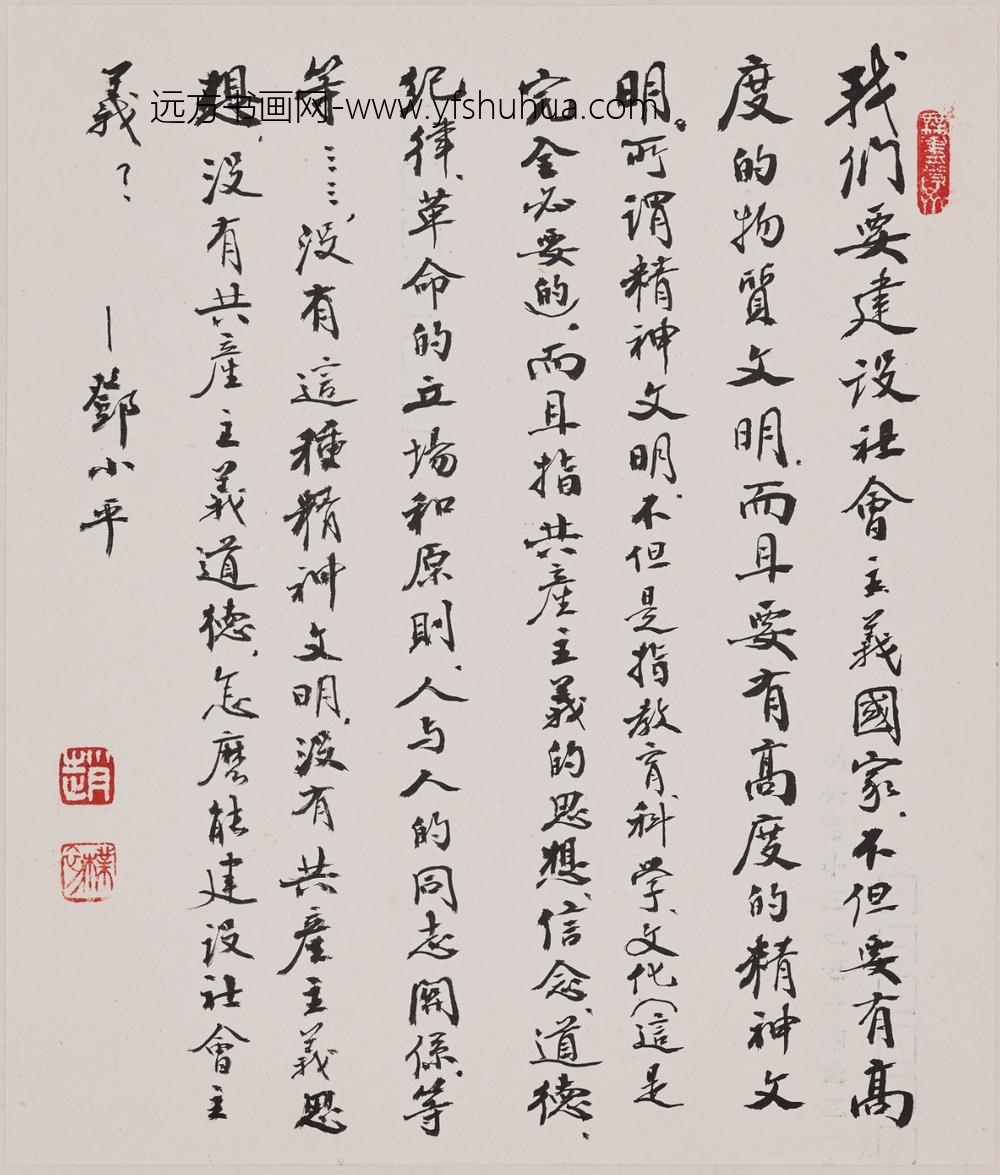 我們要建设社會主義國家、不但要有高
度的物質文明、而且要有高度的精神文
明。所謂精神文明、不但是指教育、科学、文化（這是
完全必要的）、而且指共產主義的思想、信念、道德、
紀律、革命的立場和原則、人与人的同志關係、等
等……、没有這種精神文明、没有共產主義思
想、没有共產主義道德、怎麽能建设社會主
義？
—鄧小平
趙
樸初
远方书画网-www.yfshuhua.com